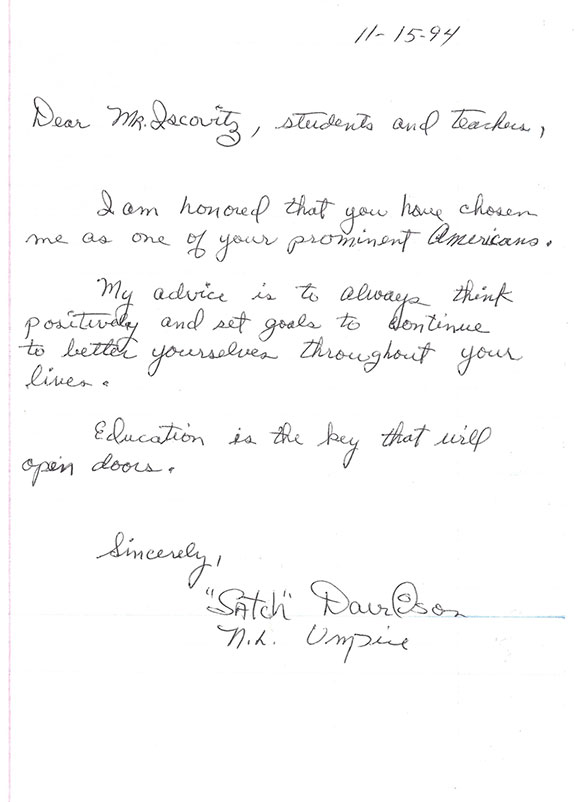 11-15-94
Dear Mr. Iscovitz, students and teachers,
I am honored that you have chosen
me as one of your prominent Americans.
My advice is to always think
positively and set goals to continue
to better yourselves throughout your
lives.
Education is the key that will
open doors.
Sincerely,
"Satch" Davidson
N.L. Umpire